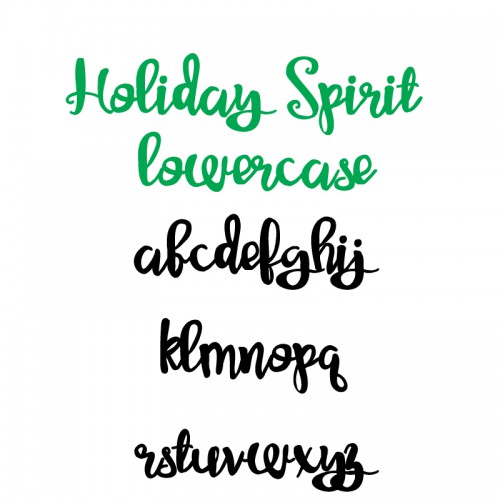 Holiday Spirit
lowercase
abcdefghij
klmnopq
rstuvwxyz